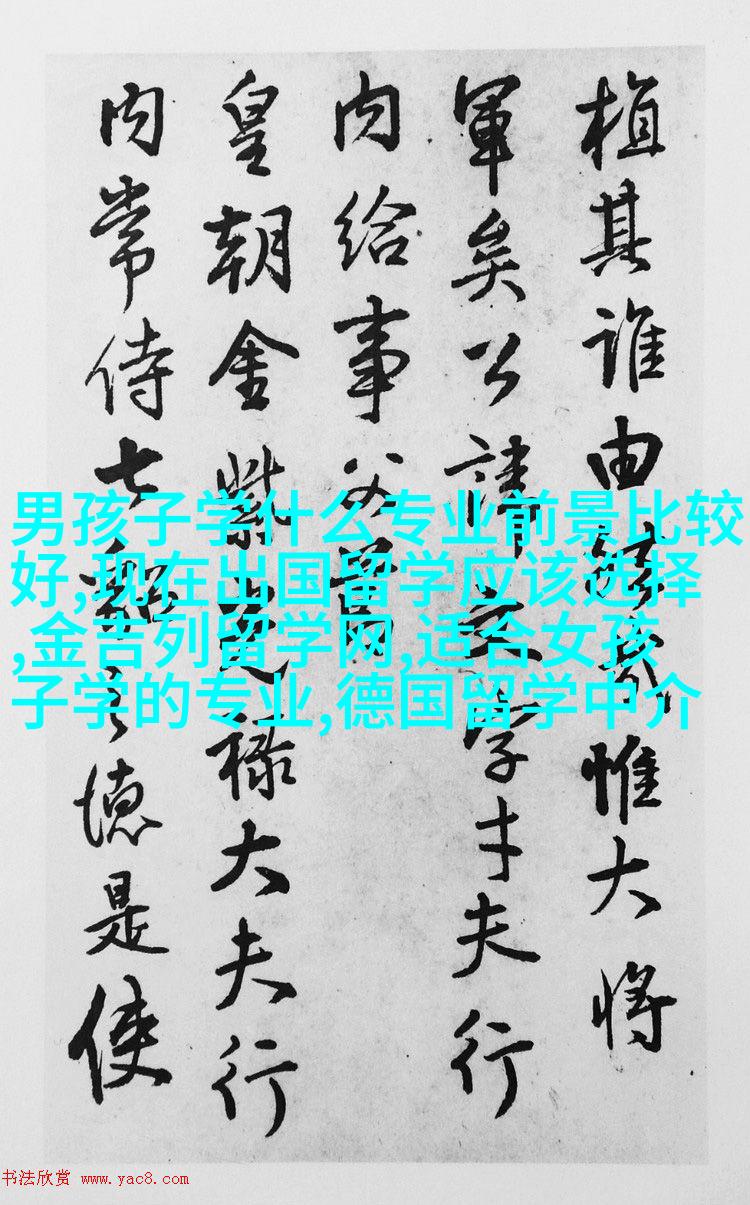 植其誰由惟大將
軍矣公諱文字才夫行
内給事父
皇朝金紫光禄大夫行
内常侍七德是使
男孩子学什么专业前景比较
好,现在出国留学应该选择
,金吉列留学网,适合女孩
子学的专业,德国留学中介
书法欣赏 www.yac8.com